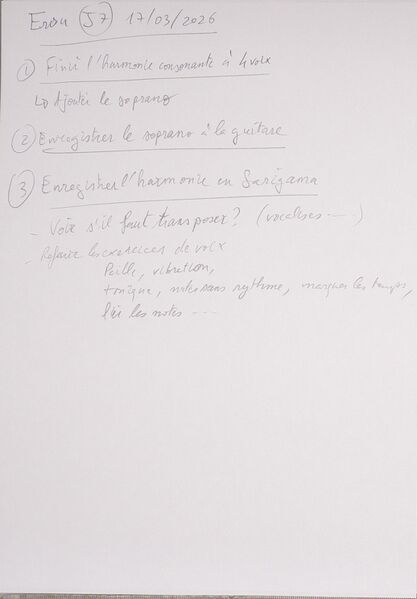 J7 17/03/2026
① Finir l'harmonie consonante à 4 voix
↳ Ajouter le soprano
② Enregistrer le soprano à la guitare
③ Enregistrer l'harmonie en Sarigama
- Voir s'il faut transposer? (vocalises ----)
- Refaire les exercices de voix
Paille, vibration,
tonique, notes sans rythme, marquer les temps,
lier les notes ---